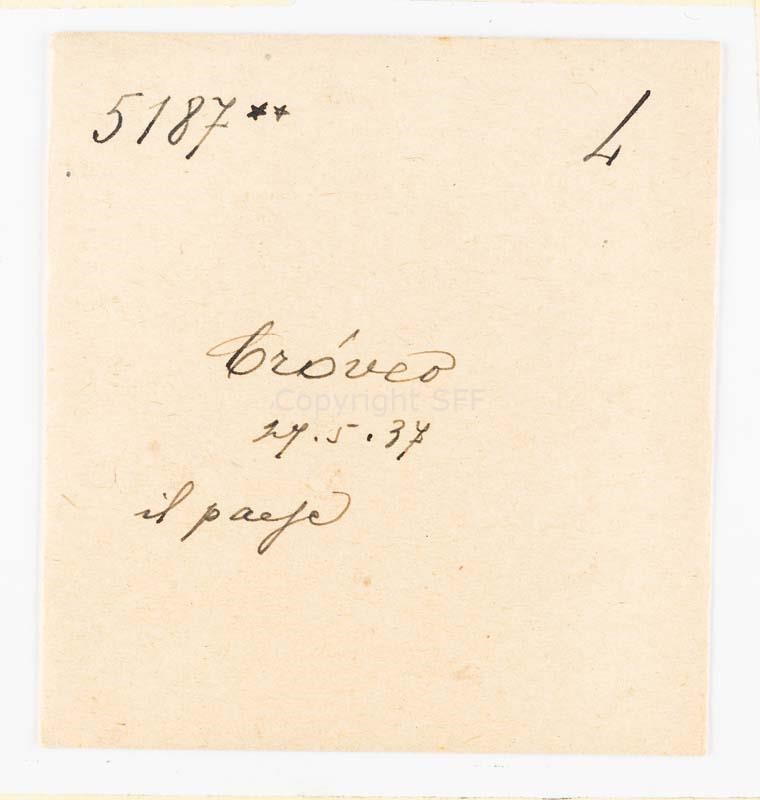 5187** L
Cróveo
27.5.37
il paese
Copyright SFF